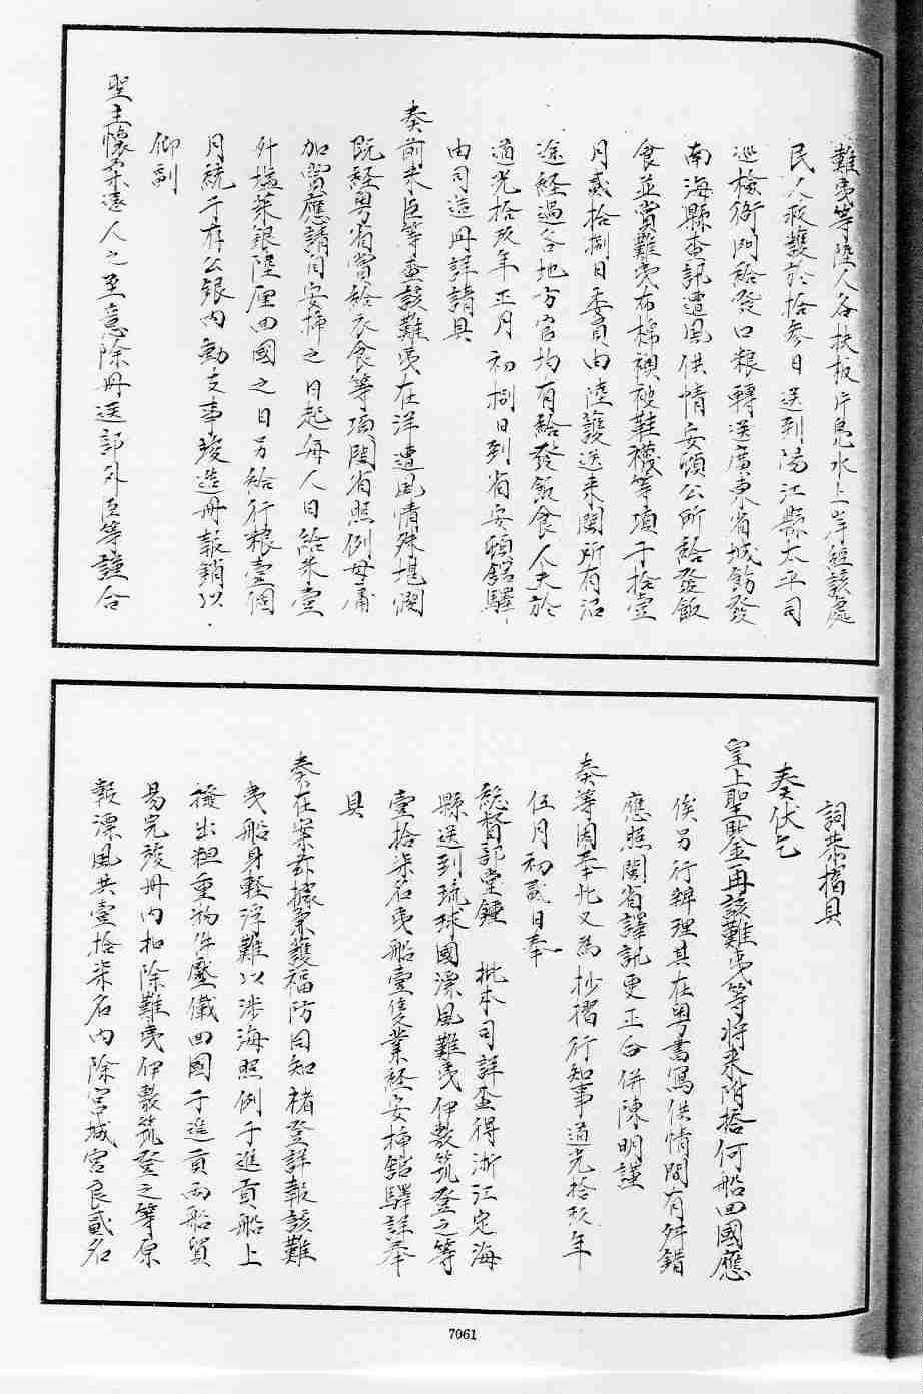 難夷等陸人各扶板片鳧水上岸經該處
民人救護於拾叁日送到陽江縣太平司
巡檢衙門給發口粮轉送廣東省城飭發
南海縣查訊遭風供情安頓公所給發飯
食並賞難夷布棉襖被鞋襪等項于拾壹
月貳拾捌日委員由陸護送來閩所有沿
途經過各地方官均有給發飯食人夫於
道光拾玖年正月初捌日到省安頓舘驛
由司造冊詳請具
奏前來臣等查該難夷在洋遭風情殊堪憫
既經粤省賞給衣食等項閩省照例毋庸
加賞應請自安揷之日起每人日給米壹
升塩菜銀陸厘回國之日另給行粮壹個
月統于存公銀內動支事竣造冊報銷以
仰副
聖主懷柔遠人之至意除冊送部外臣等謹合
詞恭摺具
奏伏乞
皇上聖鑒再該難夷等將來附搭何船回國應
俟另行辦理其在粤書寫供情間有舛錯
應照閩省譯訊更正合併陳明謹
奏等因奉此又為抄摺行知事道光拾玖年
伍月初貳日奉
總督部堂鍾 批本司詳查得浙江定海
縣送到琉球國漂風難夷伊數筑登之等
壹拾柒名夷船壹隻業經安揷舘驛詳奉
具
奏在案茲據案護福防同知褚登詳報該難
夷船身輕浮難以涉海照例于進貢船上
撥出粗重物件壓儎回國于進貢兩船貿
易完竣冊內扣除難夷伊數筑登之等原
報漂風共壹拾柒名內除宮城宮良貳名
7061